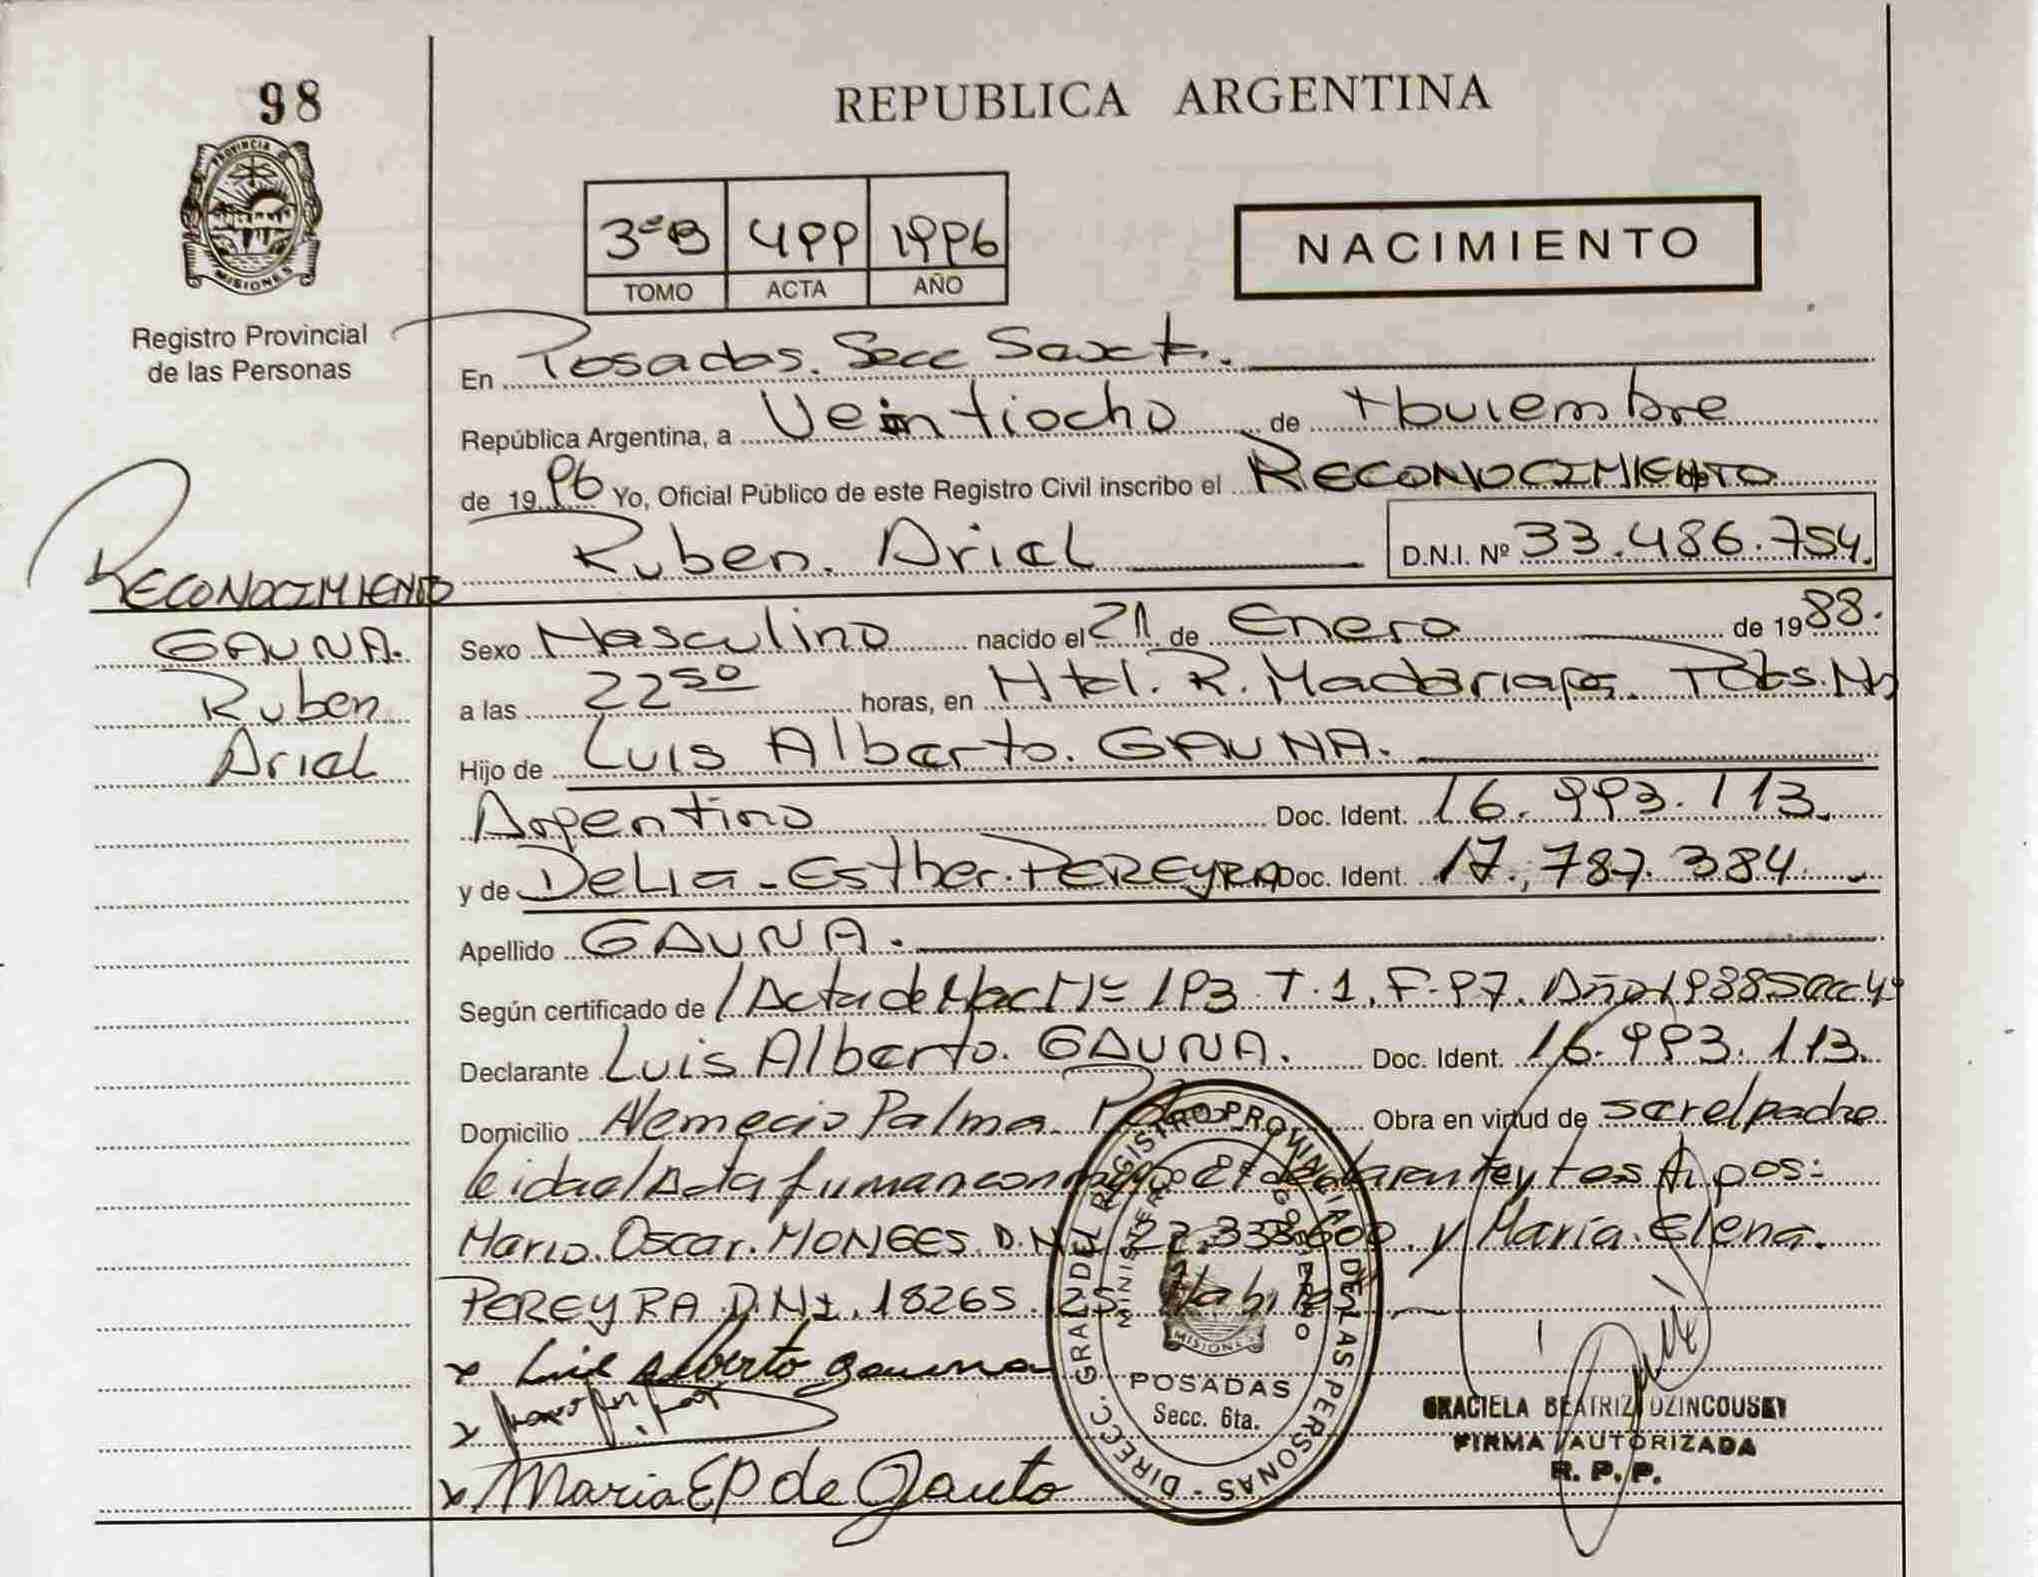 98
REPUBLICA ARGENTINA
PROVINCIA DE MISIONES
Registro Provincial
de las Personas
3ºB 499 1996
TOMO ACTA AÑO
NACIMIENTO
En Posadas. Secc Sexta.
República Argentina, a Veintiocho de Noviembre
de 1996 Yo, Oficial Público de este Registro Civil inscribo el RECONOCIMIENTO
Ruben. Ariel D.N.I. Nº 33.486.754.
RECONOCIMIENTO
GAUNA.
Ruben
Ariel
Sexo Masculino nacido el 21 de Enero de 1988.
a las 22 50 horas, en Htal. R. Madariaga. Pdas. Ms
Hijo de Luis Alberto. GAUNA.
Argentino Doc. Ident. 16.993.113.
y de Delia-Esther. PEREYRA Doc. Ident. 17.787.384.
Apellido GAUNA.
Según certificado de Acta de Nac Nº 193 T.1. F-97. Año 1988 Secc 4º
Declarante Luis Alberto. GAUNA. Doc. Ident. 16.993.113.
Domicilio Nemecio Palma. Obra en virtud de ser el padre
leida el Acta firman conmigo el declarante y testigos:
Mario. Oscar. MONGES D.N.I. 22.333.600. y María. Elena.
PEREYRA D.N.I. 18265. Habiles.
x Luis Alberto gauna
x
x Maria EP de Gauto
DIRECC. GRAL. DEL REGISTRO PROVINCIAL DE LAS PERSONAS
MINISTERIO DE GOBIERNO
MISIONES
POSADAS
Secc. 6ta.
GRACIELA BEATRIZ DZINCOUSKY
FIRMA AUTORIZADA
R. P. P.